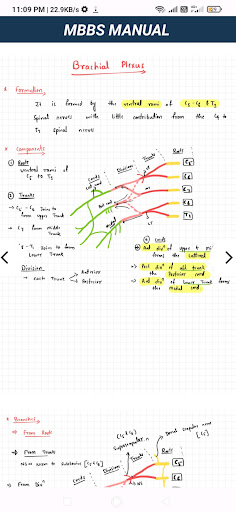 11:09 PM | 22.9KB/s
MBBS MANUAL
Brachial Plexus
Formation
It is formed by the ventral rami of C5 - C8 & T1
Spinal nerves with little contribution from the C4 to
T2 spinal nerves
Components
① Root
ventral rami of
C5 to T1
② Trunks
→ C5 - C6 Joins to
form upper Trunk
→ C7 form Middle
Trunk
8 - T1 Joins to form
Lower Trunk
Division
→ Each Trunk
Anterior
Posterior
Cords
Division
Trunk
Root
C5
C6
C7
C8
T1
UT
MT
LT
④ Cords
→ Ant divn of upper & mid
forms the Lateral
→ Post divn of all trunk
the Posterior cord
→ Ant divn of Lower Trunk forms
the medial cord
Branches
⇒ From Root
⇒ From Trunk
Nerve to Subclavius [C5 C6]
⇒ From Divn
(C5 C6)
Suprascapular n
Cords
Division
Trunk
Root
Dorsal scapular nerve
[C5]
C5
C6